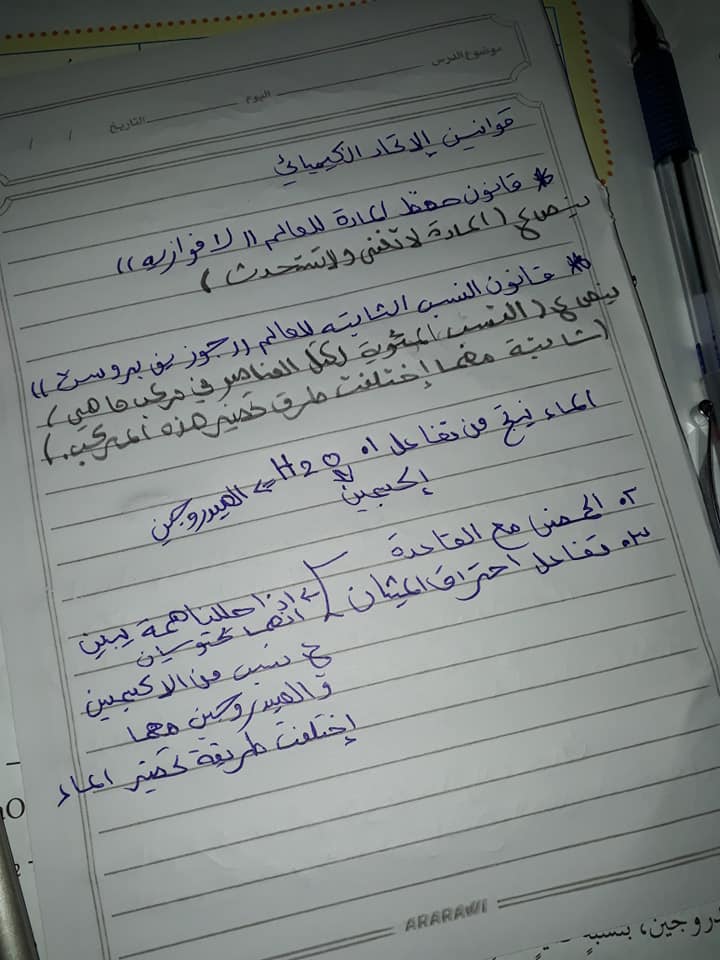 موضوع الدرس
اليوم التاريخ / /
قوانين الإتحاد الكيميائي
* قانون حفظ المادة للعالم ((لافوازيه))
ينص ع (المادة لا تفنى ولا تستحدث)
* قانون النسب الثابته للعالم ((جوزيف بروست))
ينص ع (النسب المئوية لكل العناصر في مركب ما هي)
(ثابتة مهما إختلفت طرق تحضير هذه المركب.)
الماء ينتج من تفاعل ٠١ H2O ⇐ الهيدروجين
إكسجين
٠٢ الحمض مع القاعدة
٠٣ تفاعل احتراق الميثان
⇐ اذا حللناهمة يبين
انهما يحتويان
ع نسب من الاكسجين
و الهيدروجين مهما
إختلفت طريقة تحضير الماء
ARARAWI
دروجين، بنسبة